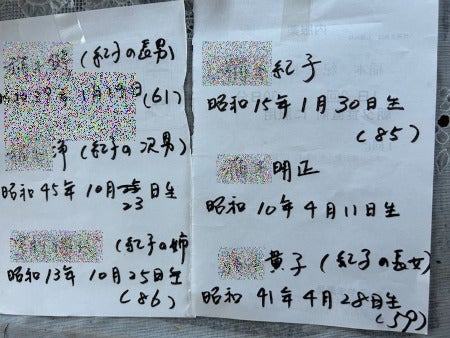 (紀子の長男)
1月19日(61)
浄(紀子の次男)
昭和45年10月23日生
(紀子の姉
昭和13年10月25日生
(86)
紀子
昭和15年1月30日生
(85)
明正
昭和10年4月11日生
貴子(紀子の長女)
昭和41年4月28日生
(59)